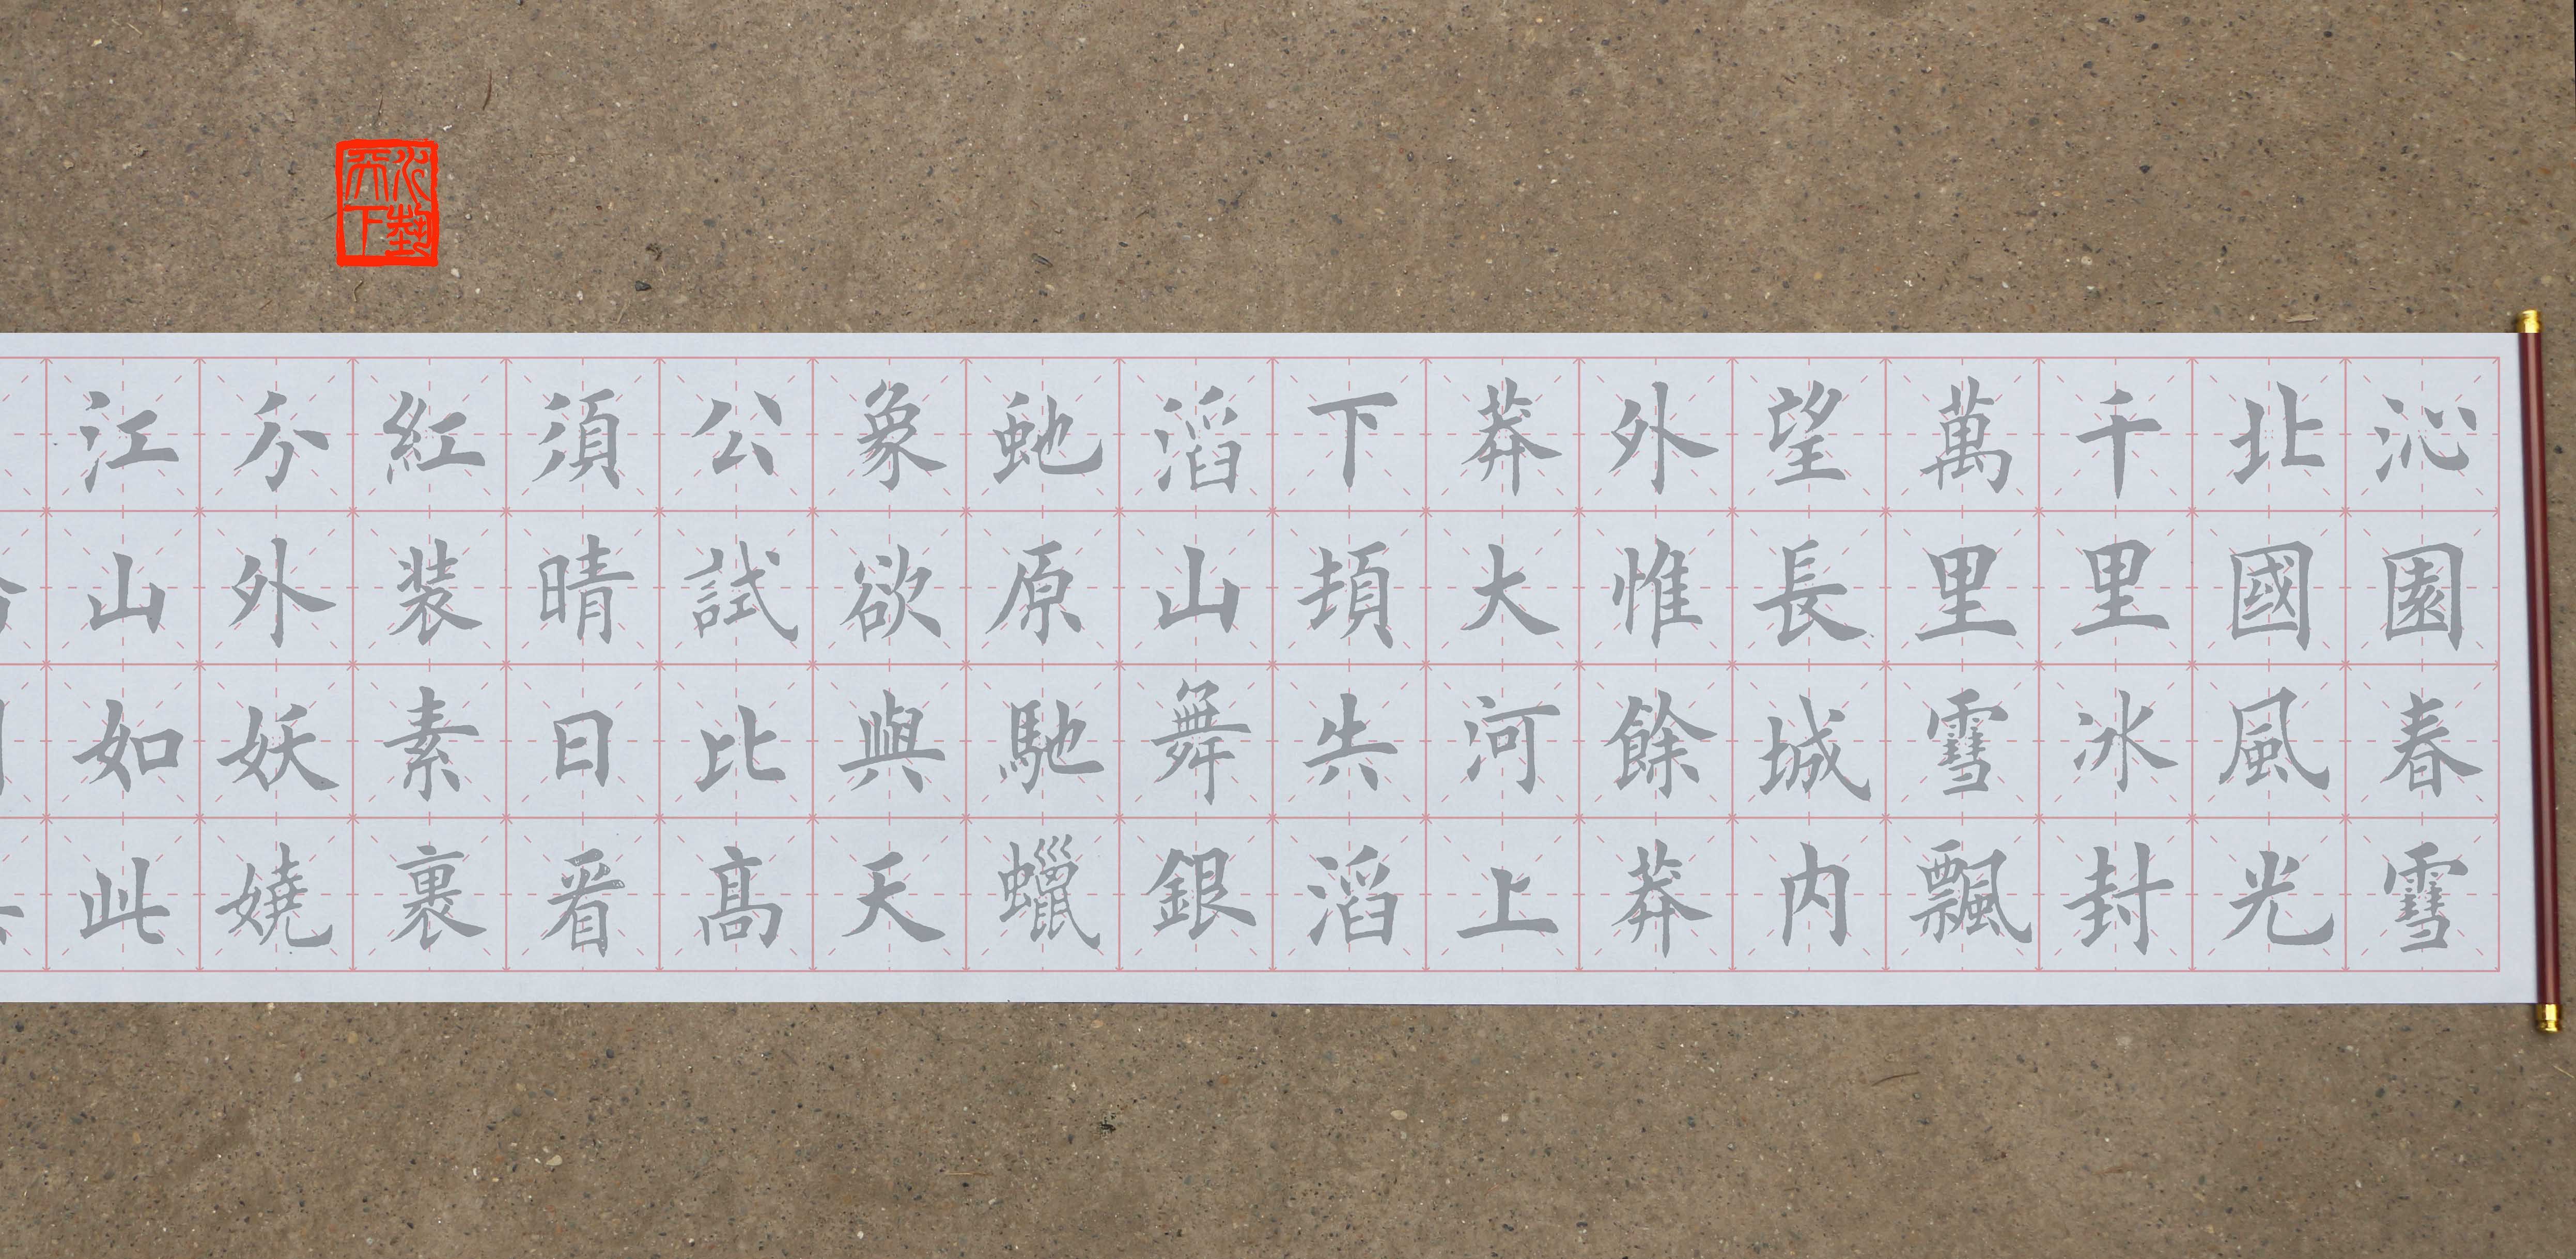 天下
沁園春雪
北國風光
千里冰封
萬里雪飄
望長城内
外惟餘莽
莽大河上
下頓失滔
滔山舞銀
虵原馳蠟
象欲與天
公試比髙
須晴日看
紅装素裹
分外妖嬈
江山如此